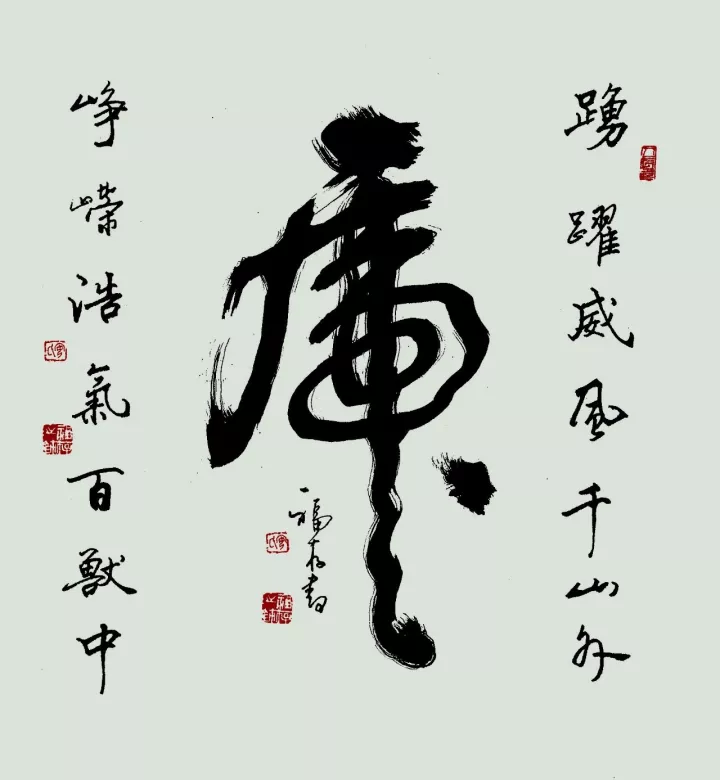 踴躍威風千山外
虎
福存書
崢嶸浩氣百獸中